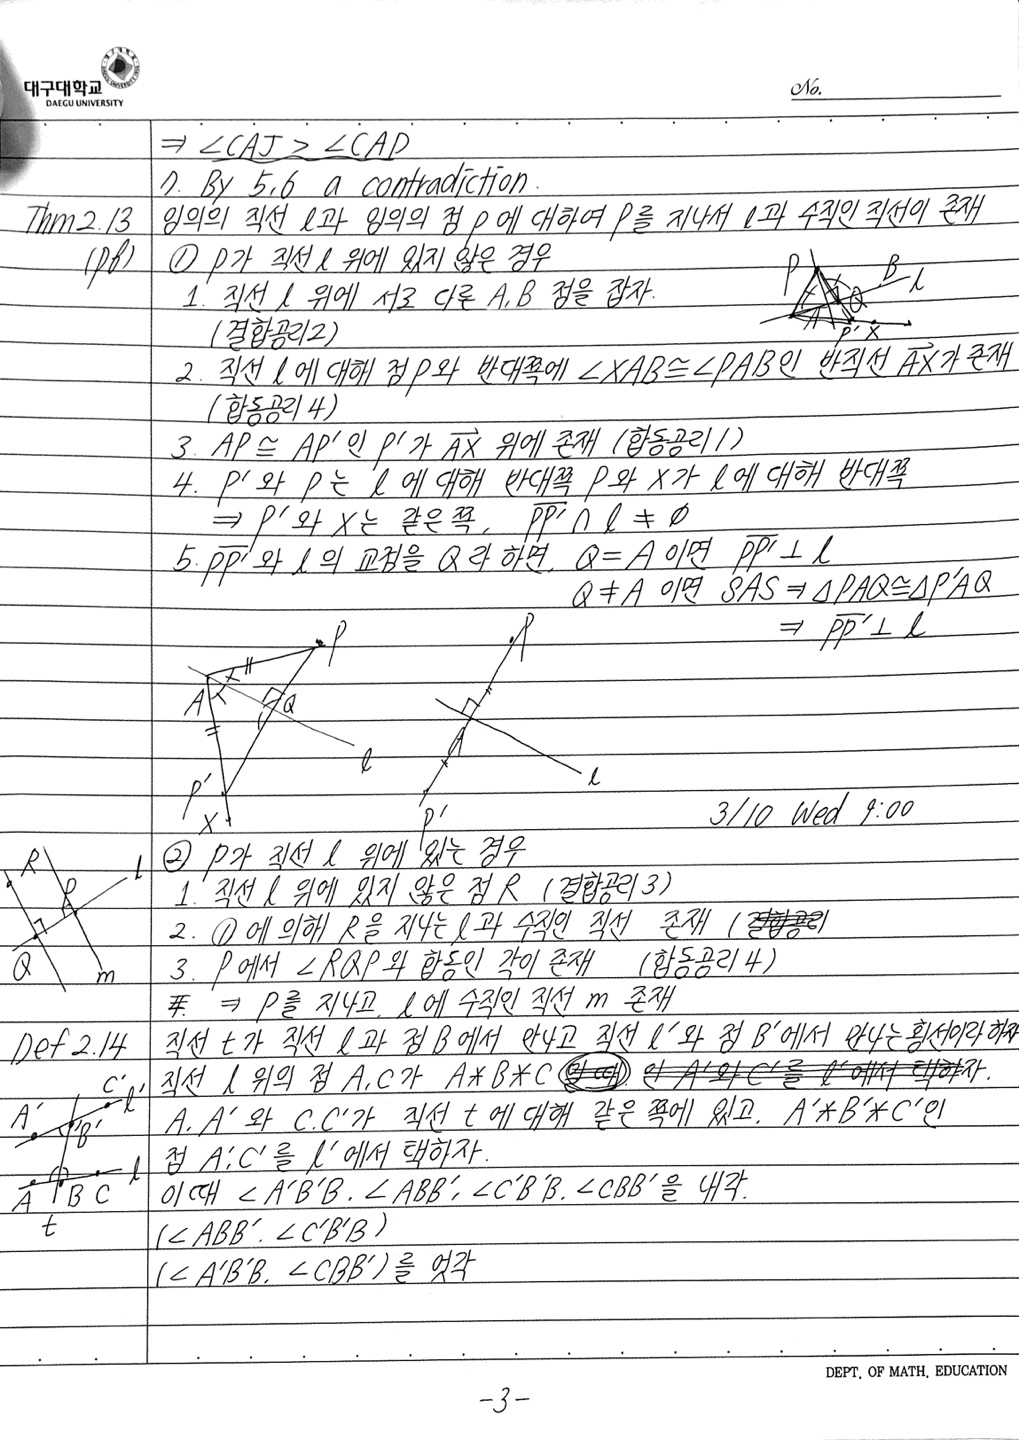 대구대학교
DAEGU UNIVERSITY
No.
⇒ ∠CAJ > ∠CAD
7. By 5,6 a contradiction.
Thm 2.13 임의의 직선 l과 임의의 점 P에 대하여 P를 지나서 l과 수직인 직선이 존재
(pf) ① P가 직선 l 위에 있지 않은 경우
1. 직선 l 위에 서로 다른 A, B 점을 잡자.
(결합공리2)
P B l Q A P' X
2. 직선 l에 대해 점 P와 반대쪽에 ∠XAB≅∠PAB인 반직선 AX가 존재
(합동공리4)
3. AP≅AP'인 P'가 AX 위에 존재 (합동공리1)
4. P'와 P는 l에 대해 반대쪽 P와 X가 l에 대해 반대쪽
⇒ P'와 X는 같은쪽, PP' ∩ l ≠ ∅
5. PP'와 l의 교점을 Q라 하면, Q=A 이면 PP' ⊥ l
Q≠A 이면 SAS ⇒ △PAQ≅△P'AQ
⇒ PP' ⊥ l
P A Q l P' X
P A l P'
3/10 Wed 9:00
② P가 직선 l 위에 있는 경우
1. 직선 l 위에 있지 않은 점 R (결합공리3)
2. ①에 의해 R을 지나는 l과 수직인 직선 존재 (결합공리
3. P에서 ∠RQP와 합동인 각이 존재 (합동공리4)
⇒ P를 지나고 l에 수직인 직선 m 존재
R P l Q m
Def 2.14 직선 t가 직선 l과 점 B에서 만나고 직선 l'와 점 B'에서 만나는 횡선이라 하자
직선 l 위의 점 A, C가 A*B*C 일때 인 A'와 C'를 l'에서 택하자.
A, A'와 C, C'가 직선 t에 대해 같은쪽에 있고, A'*B'*C'인
점 A', C'를 l'에서 택하자.
이때 ∠A'B'B, ∠ABB', ∠C'B'B, ∠CBB'을 내각.
(∠ABB', ∠C'B'B)
(∠A'B'B, ∠CBB')를 엇각
C' l' A' B'
A B C l
t
DEPT. OF MATH. EDUCATION
-3-